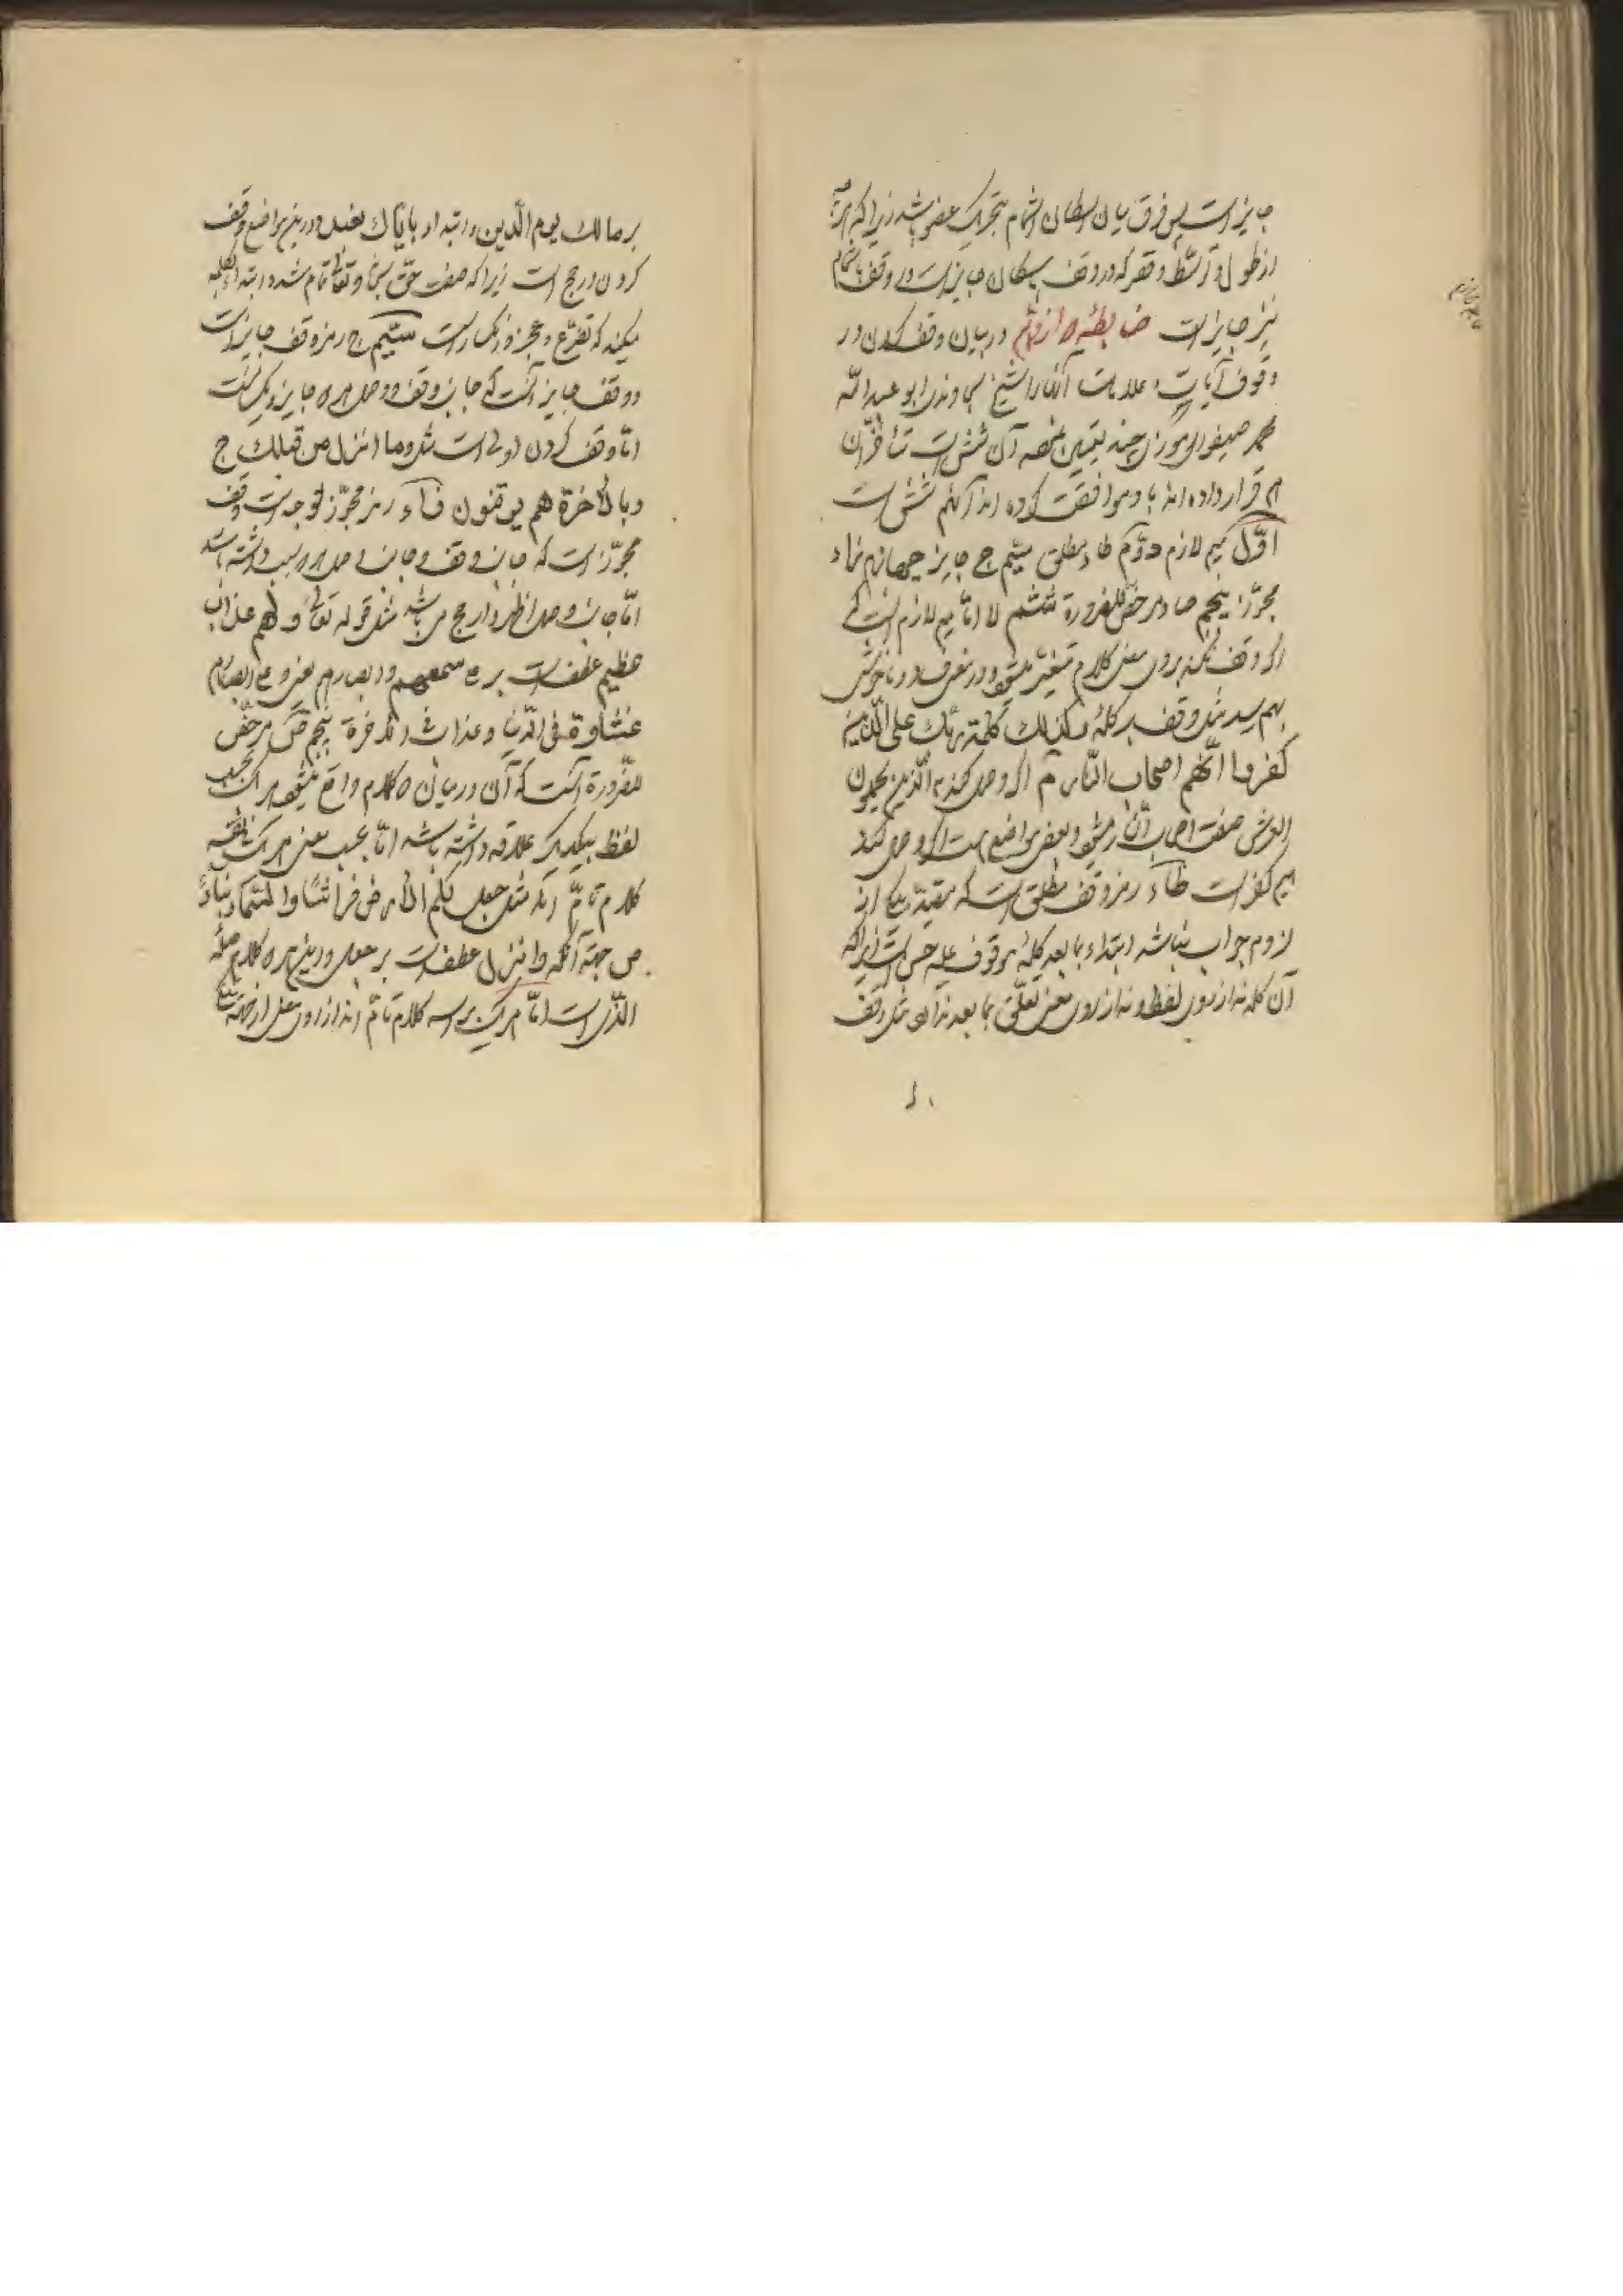 جایز است پس فرق میان اسکان و اشمام بتحریک عضو باشد زیرا که هر
از طول و توسّط و قصر که در وقف باسکان جایز است در وقف باشمام
نیز جایز است ضابطهٔ دوازدهم در بیان وقف کردن در
وقوف آیات و علامات آنها را شیخ سجاوندی ابو عبدالله
محمد طیفور چند تعیین آن شش است متأخّران
هم قرار داده اند با او موافقت کرده اند آنهم شش است
اوّل میم لازم دوّم طاء مطلق سیّم ج جایز چهارم زاء
مجوّز پنجم صاد مرخّص للضرورة ششم لا امّا میم لازم آنست که
اگر وقف نکند بروی معنی کلام متغیّر میشود و در معنی ناخوش
بهم رسد مثل وقف بر کلمهٔ وکذالك کلمة ربّك علی الّذین
کفروا انّهم اصحاب النّار م اگر وصل کند به الّذین یحملون
العرش صفت اصحاب النّار میشود و بعضی مواضع هست اگر وصل کند
بیم کفر است طآء رمز وقف مطلق است که مقید
لزوم جواب نباشد ابتداء بما بعد کلمهٔ موقوف علیه حسن است زیرا که
آن کلمه نه از روی لفظ و نه از روی معنی تعلّق بما بعد ندارد مثل وقف
بر مالك یوم الدّین و ابتداء بایّاك نعبد و درین مواضع وقف
کردن ارجح است زیرا که صفت حقّ سبحانه و تعالی تمام شده ابتداء بکلمه
میکند که تضرّع و عجز و انکسار است سیّم ج رمز وقف جایز است
و وقف جایز آنست که جانب وقف و وصل هر دو جایز و یکسانست
امّا وقف کردن اولی است مثل وما انزل من قبلك ج
وبالآخرة هم یوقنون زآء رمز مجوّز لوجه است وقف
مجوّز است که جانب وقف و جانب وصل هر دو سبب داشته باشد
امّا جانب وصل اظهر و ارجح می باشد مثل قوله تعالی ولهم عذاب
عظیم عطف است بر علی سمعهم وابصارهم یعنی وعلی ابصارهم
غشاوة فی الدّنیا وعذاب فی الآخرة پنجم ص مرخّص
للضّرورة آنست که آن در میان دو کلام واقع میشود هر یک بحسب
لفظ بیکدیگر علاقه داشته باشد امّا بحسب معنی هر یک
کلام تامّ اند مثل جعل لکم الأرض فراشًا والسّمآء بنآءً
ص جهة آنکه وانزل عطف است بر جعل و درین هر دو کلام صلهٔ
الّذی است امّا هر یک بر سر کلام تامّ اند از روی معنی از جهة